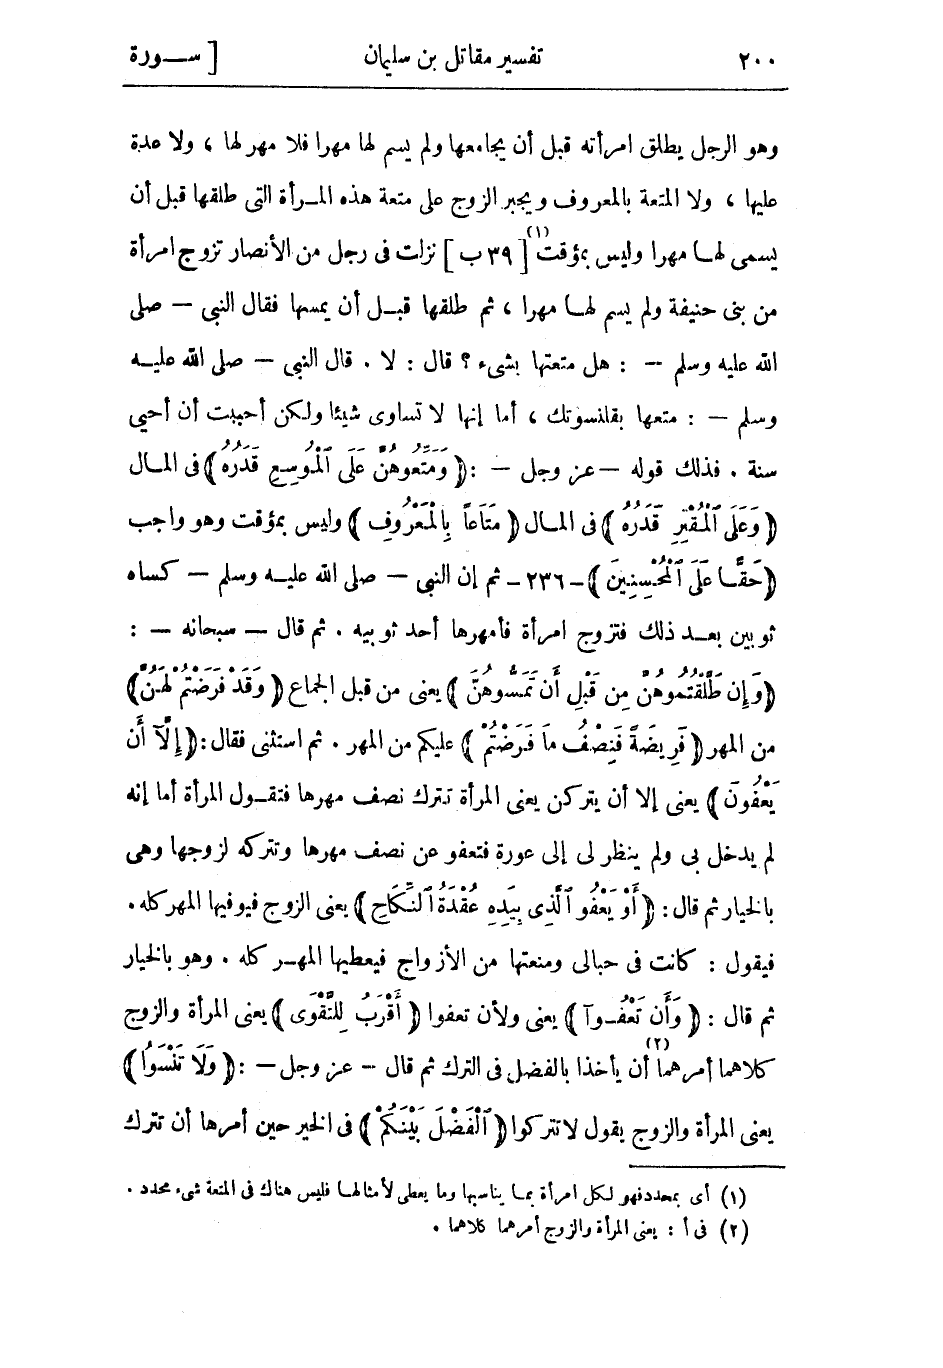 ٢٠٠ تفسير مقاتل بن سليمان [ سـورة
وهو الرجل يطلق امرأته قبل أن يجامعها ولم يسم لها مهرا فلا مهر لها ، ولا عدة
عليها ، ولا المتعة بالمعروف ويجبر الزوج على متعة هذه المـرأة التى طلقها قبل أن
يسمى لهـا مهرا وليس بمؤقت(١) [ ٣٩ ب ] نزلت فى رجل من الأنصار تزوج امرأة
من بنى حنيفة ولم يسم لهـا مهرا ، ثم طلقها قبـل أن يمسها فقال النبى — صلى
الله عليه وسلم — : هل متعتها بشىء ؟ قال : لا . قال النبى — صلى الله عليـه
وسلم — : متعها بقلنسوتك ، أما إنها لا تساوى شيئا ولكن أحببت أن أحيي
سنة . فذلك قوله — عز وجل — : ﴿ وَمَتِّعُوهُنَّ عَلَى ٱلْمُوسِعِ قَدَرُهُ ﴾ فى المـال
﴿ وَعَلَى ٱلْمُقْتِرِ قَدَرُهُ ﴾ فى المـال ﴿ مَتَاعاً بِالْمَعْرُوفِ ﴾ وليس بمؤقت وهو واجب
﴿ حَقًّـا عَلَى ٱلْمُحْسِنِينَ ﴾ - ٢٣٦ - ثم إن النبى — صلى الله عليـه وسلم — كساه
ثوبين بعـد ذلك فتزوج امرأة فأمهرها أحد ثوبيه . ثم قال — سبحانه — :
﴿ وَإِن طَلَّقْتُمُوهُنَّ مِن قَبْلِ أَن تَمَسُّوهُنَّ ﴾ يعنى من قبل الجماع ﴿ وَقَدْ فَرَضْتُمْ لَهُنَّ ﴾
من المهر ﴿ فَرِيضَةً فَنِصْفُ مَا فَرَضْتُمْ ﴾ عليكم من المهر . ثم استثنى فقال : ﴿ إِلَّآ أَن
يَعْفُونَ ﴾ يعنى إلا أن يتركن يعنى المرأة تترك نصف مهرها فتقـول المرأة أما إنه
لم يدخل بى ولم ينظر لى إلى عورة فتعفو عن نصف مهرها وتتركه لزوجها وهى
بالخيار ثم قال : ﴿ أَوْ يَعْفُو ٱلَّذِى بِيَدِهِ عُقْدَةُ ٱلنِّكَاحِ ﴾ يعنى الزوج فيوفيها المهر كله .
فيقول : كانت فى حبالى ومنعتها من الأزواج فيعطيها المهـر كله . وهو بالخيار
ثم قال : ﴿ وَأَن تَعْفُـوآ ﴾ يعنى ولأن تعفوا ﴿ أَقْرَبُ لِلتَّقْوَى ﴾ يعنى المرأة والزوج
كلاهما أمرهما(٢) أن يأخذا بالفضل فى الترك ثم قال — عز وجل — : ﴿ وَلَا تَنْسَوُا ﴾
يعنى المرأة والزوج يقول لا تتركوا ﴿ ٱلْفَضْلَ بَيْنَكُمْ ﴾ فى الخير حين أمرها أن تترك
(١) أى بمحدد فهو لـكل امرأة بمـا يناسبها وما يعطى لأمثالهـا فليس هناك فى المتعة شىء محدد .
(٢) فى أ : يعنى المرأة والزوج أمرهما كلاهما .